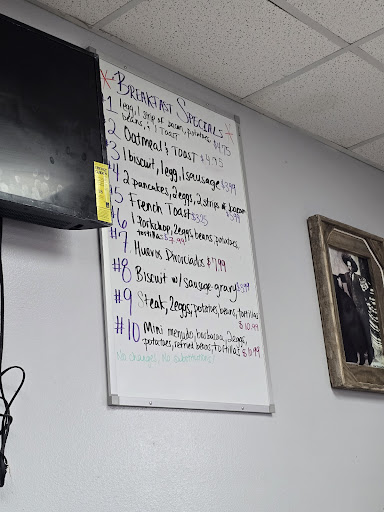 * BREAKFAST SPECIALS *
1 1 egg, 1 strip of bacon, potatoes,
beans, & 1 TOAST $4.75
2 Oatmeal & TOAST $4.95
3 1 biscuit, 1 egg, 1 sausage $3.99
4 2 pancakes, 2 eggs, 2 strips of bacon
#5 French Toast $3.25 $5.99
#6 1 Porkchop, 2 eggs, beans, potatoes,
tortillas $7.99
#7 Huevos Divorciados $7.99
#8 Biscuit w/ sausage gravy $3.99
#9 Steak, 2 eggs, potatoes, beans, tortillas
$10.99
#10 Mini menudo, barbacoa, 2 eggs,
potatoes, refried beans, tortillas $10.99
No changes, No substitutions!